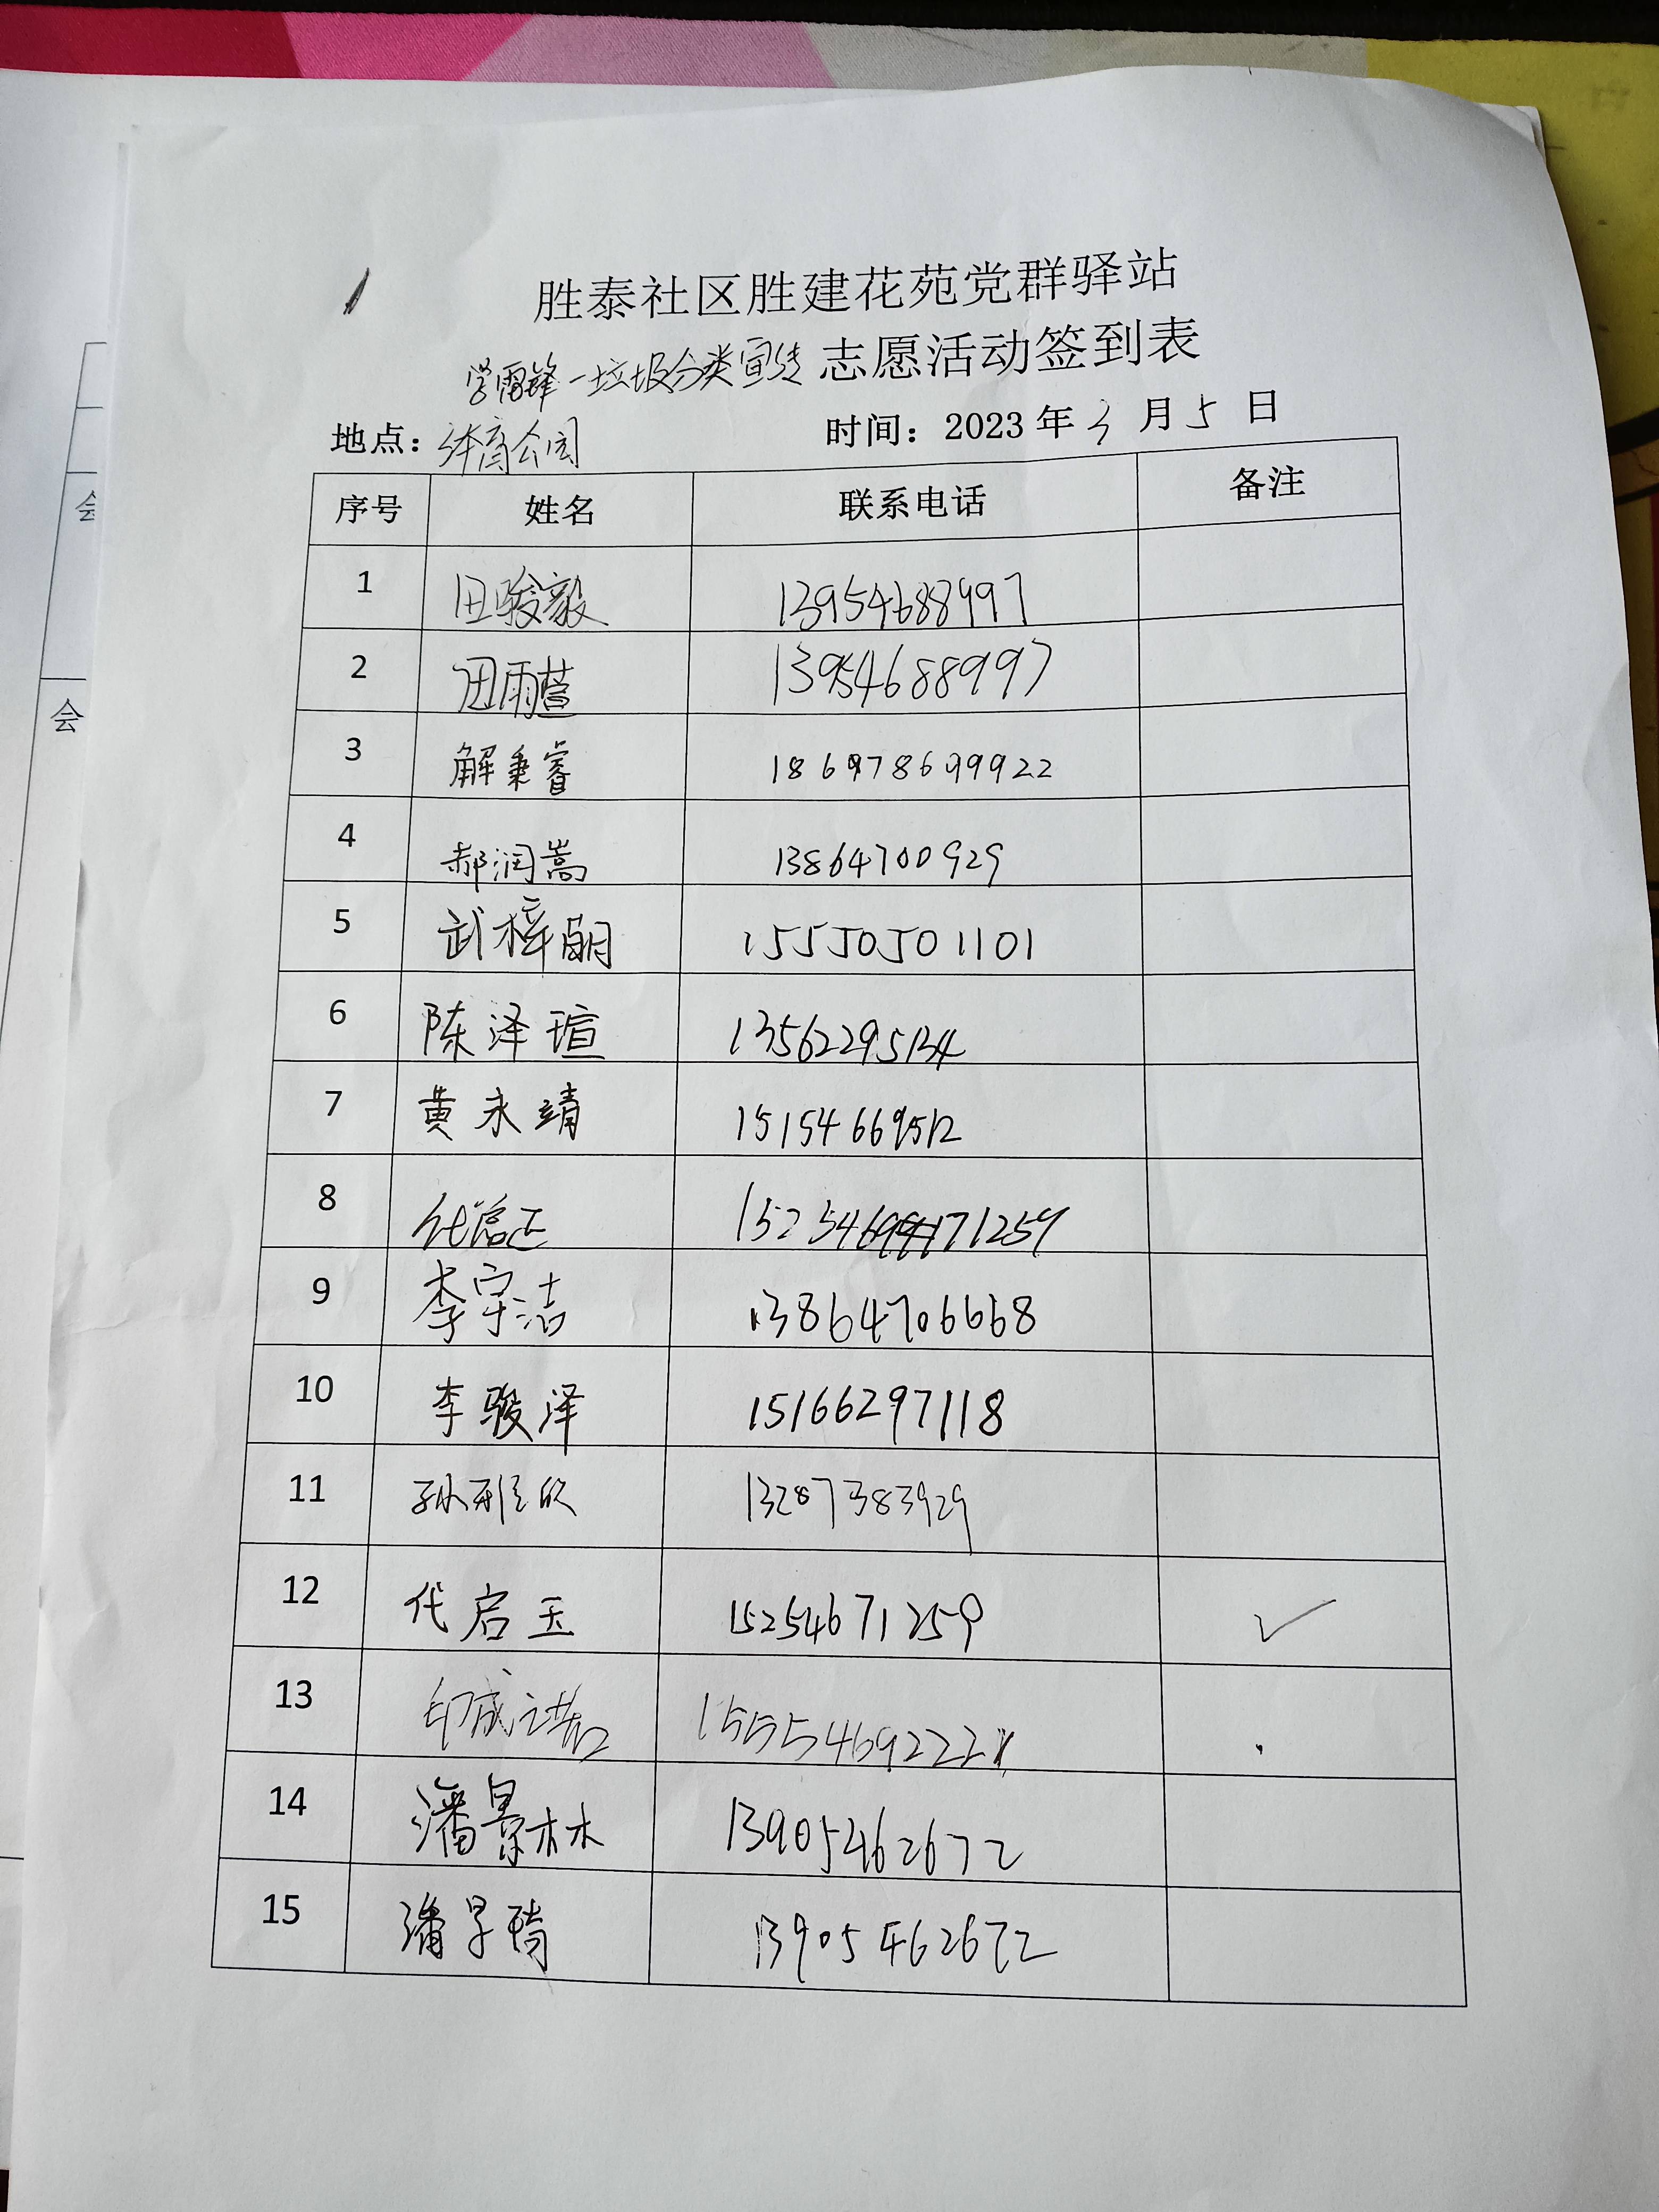 胜泰社区胜建花苑党群驿站
学雷锋-垃圾分类宣传 志愿活动签到表
地点：体育公园 时间：2023年3月5日
序号 姓名 联系电话 备注
1 田骏毅 13954688997
2 田雨萱 13954688997
3 解秉睿
4 郝润嵩 13864700929
5 武梓朗 15550501101
6 陈泽瑄 13562295134
7 黄永靖 15154669512
8
9 李宗洁 13864706668
10 李骏泽 15166297118
11 孙雅欣 13287383929
12 代启玉 15254671259 ✓
13 印成之诺
14 潘景林 13905462672
15 潘景琦 13905462672
会
会